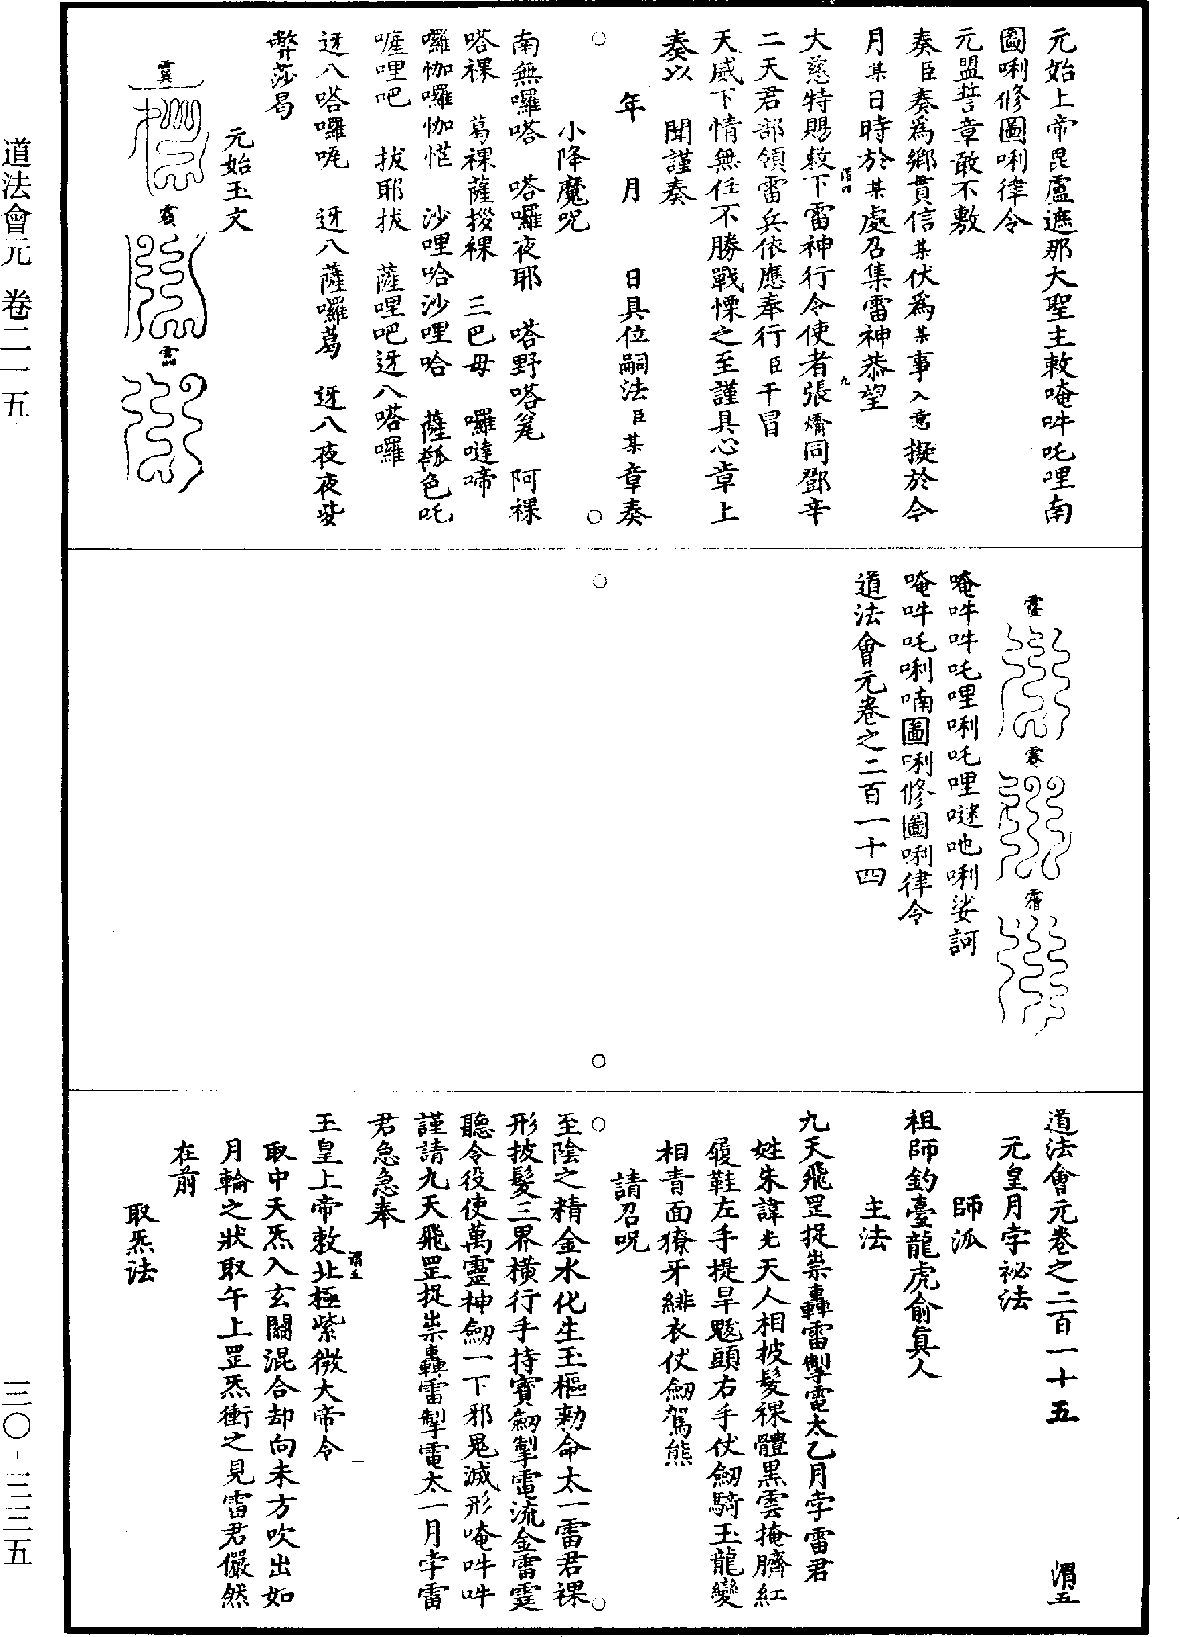 元始上帝毘盧遮那大聖主敕唵吽吒哩南
圖唎修圖唎律令
元盟誓章敢不敷
奏臣奏爲鄉貫信某伏爲某事入意擬於今
月某日時於某處召集雷神恭望
大慈特賜敕下雷神行令使者張燏同鄧辛
二天君部領雷兵依應奉行臣干冒
天威下情無任不勝戰慄之至謹具心章上
奏以　聞謹奏
年　月　日具位嗣法臣某章奏
小降魔咒
南無囉嗒　嗒囉夜耶　嗒野嗒笂　阿裸
嗒裸　葛裸薩撥裸　三巴母　囉噠啼
囉怰囉怰惤　沙哩哈沙哩哈　薩㼎色吒
喱哩吧　拔耶拔　薩哩吧迓八嗒囉
迓八嗒囉呃　迓八薩囉葛　迓八夜夜娑
弊莎曷
元始玉文
唵吽吽吒哩唎吒哩噠吔唎娑訶
唵吽吒唎喃圖唎修圖唎律令
道法會元卷之二百一十四
道法會元卷之二百一十五　渭五
元皇月孛祕法
師派
祖師釣臺龍虎俞眞人
主法
九天飛罡捉祟轟雷掣電太乙月孛雷君
姓朱諱光天人相披髮裸體黑雲掩臍紅
履鞋左手提旱魃頭右手仗劒騎玉龍變
相青面獠牙緋衣仗劒駕熊
請召咒
至陰之精金水化生玉樞勑命太一雷君裸
形披髮三界橫行手持寶劒掣電流金雷霆
聽令役使萬靈神劒一下邪鬼滅形唵吽吽
謹請九天飛罡捉祟轟雷掣電太一月孛雷
君急急奉
玉皇上帝敕北極紫微大帝令
取中天炁入玄關混合却向未方吹出如
月輪之狀取午上罡炁衝之見雷君儼然
在前
取炁法
道法會元　卷二一五
三〇-三三五